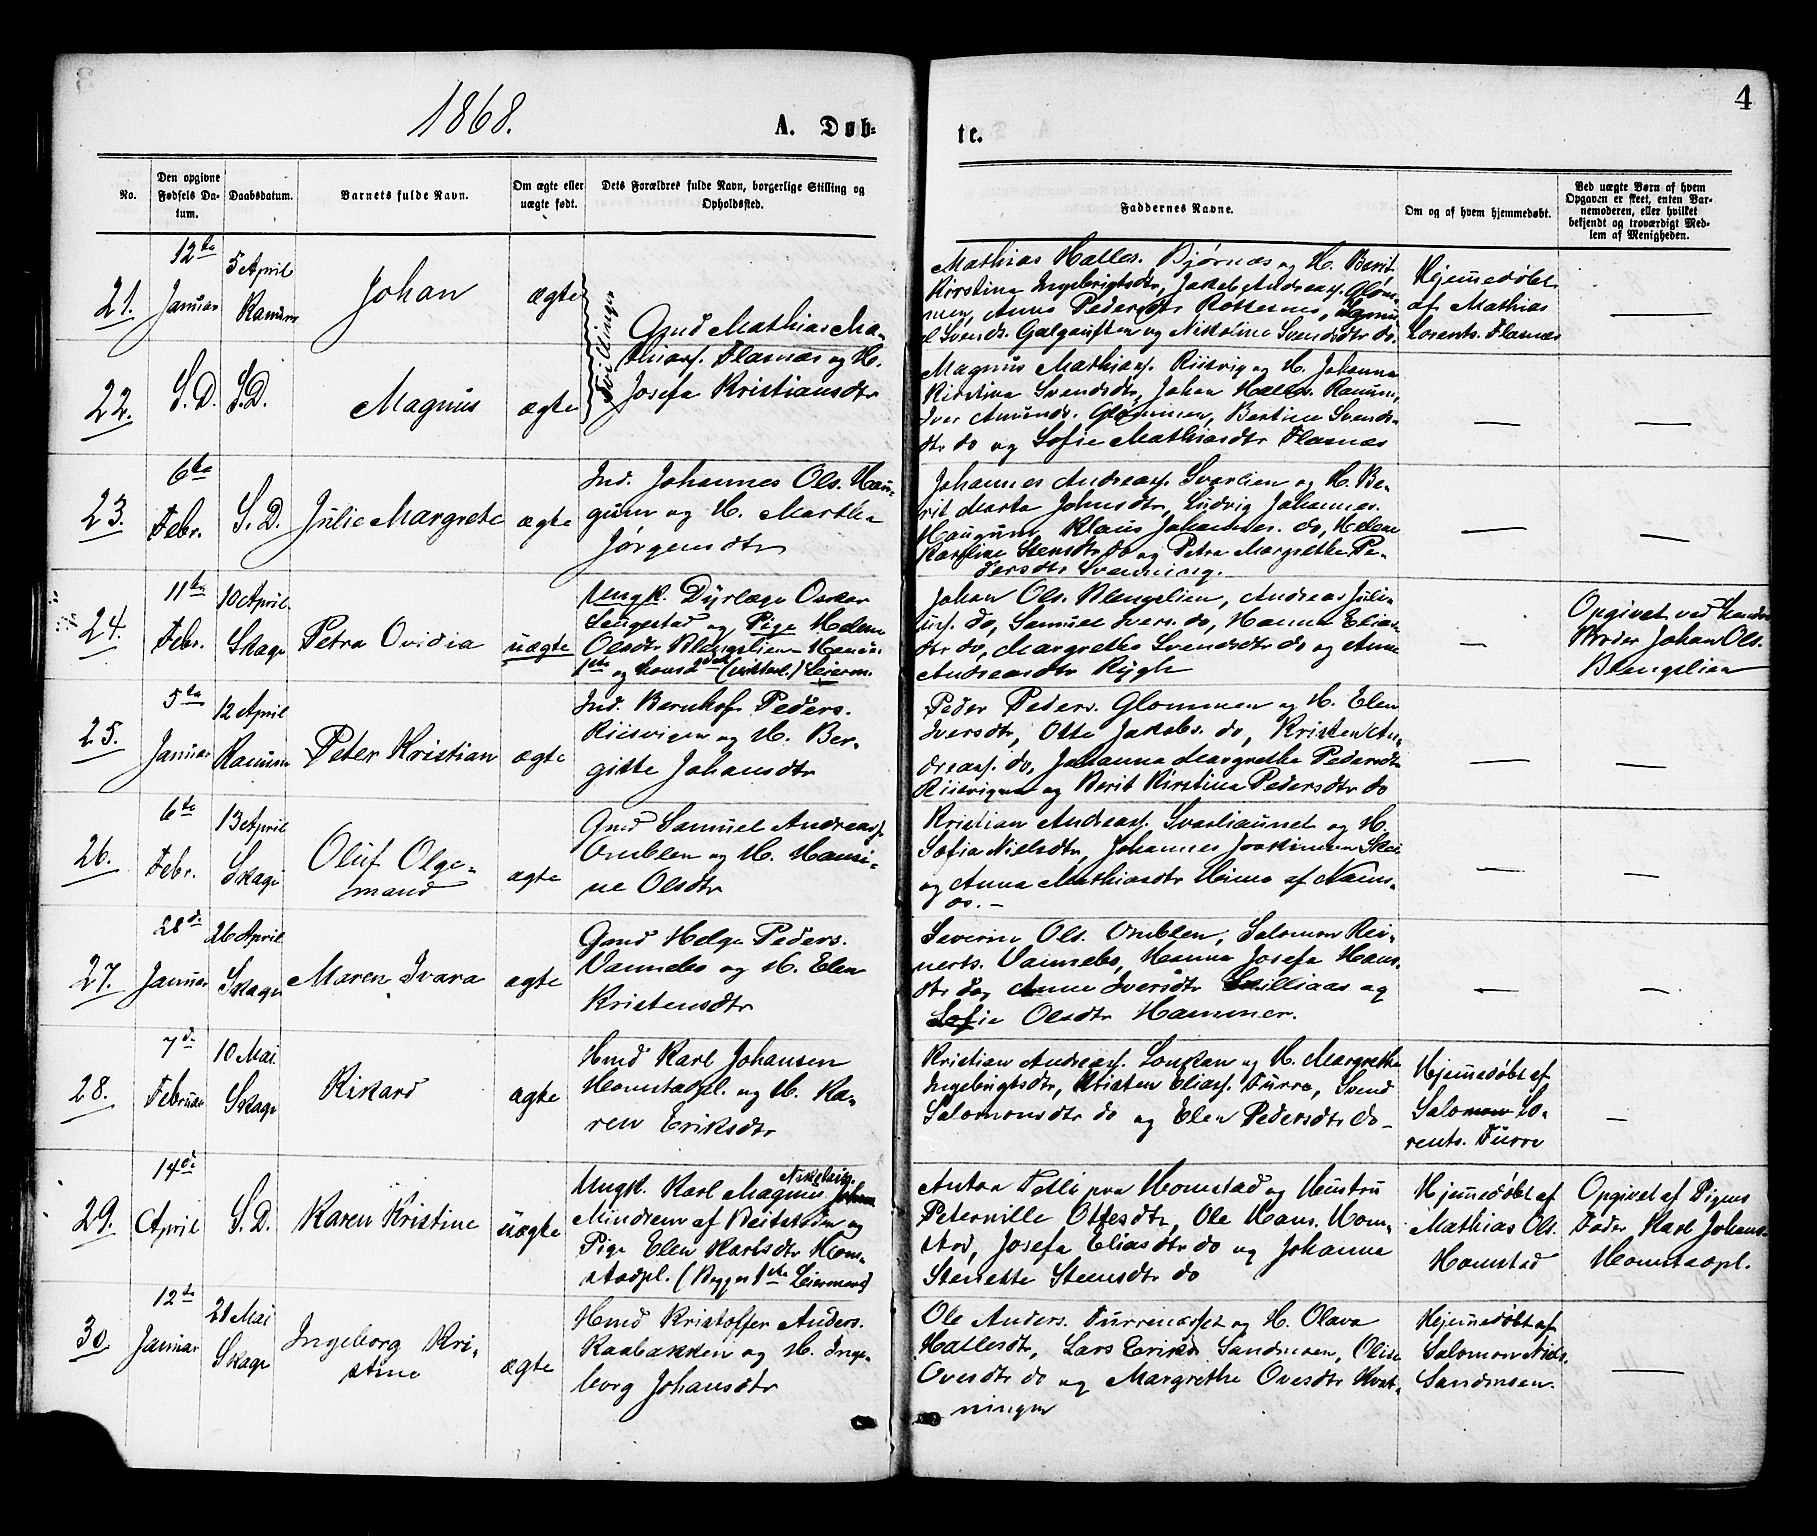 4
1868.
A. Døb-
te.
No.
Den opgivne
Fødsels Da-
tum.
Daabsdatum.
Barnets fulde Navn.
Om ægte eller
uægte født.
Dets Forældres fulde Navn, borgerlige Stilling og
Opholdssted.
Faddernes Navne.
Om og af hvem hjemmedøbt.
Ved uægte Børn af hvem
Opgaven er skeet, enten Bar-
nemoderen, eller hvilket
bekjendt og troværdigt Med-
lem af Menigheden.
21.
12te
Januar
5 April
Ranum
Johan
ægte
Tvillinger
Gmd Mathias Ma-
thiass. Flasnæs og H.
Josefa Kristiansdtr
Mathias Halles. Bjørnæs og H. Berit
Kirstina Ingebrigtsdtr, Jakob Andreass. Glom-
men, Anne Pedersdtr Rottesnes,
Svends. Galguften og Nikoline Svendsdtr do.
Hjemmedøbt
af Mathias
Lorents. Flasnæs
—
22.
S.D.
S.D.
Magnus
ægte
Magnus Mathiass. Riisvig og H. Johanna
Kirstina Svendsdtr, Johan Halles. Ranum,
Iver Amunds. Glommen, Bertine Svends-
dtr do og Sofie Mathiasdtr Flasnæs
—
—
23.
6te
Febr.
S.D.
Julie Margrete
ægte
Ind. Johannes Ols. Hau-
gum og H. Martha
Jørgensdtr
Johannes Andreass. Svarlien og H. Be-
rit Marta Johnsdtr, Ludvig Johannes.
Haugum, Klaus Johannes. do, Helene
Karoline Stensdtr do og Petra Margrethe Pe-
dersdtr Svenning.
—
—
24.
11te
Febr.
10 April
Skage
Petra Ovidia
uægte
Ungk. Dyrlæge Oskar
Saugestad og Pige Helene
Olsdtr Blengslien Hendes
1ste og hans 2det Leierm.
Johan Ols. Blengslien, Andreas Juli-
us. do, Samuel Ivers. do, Hanna Elias-
dtr do, Margrethe Svendsdtr do og Anne
Andreasdtr Rygh
—
Opgivet ved hendes
Broder Johan Ols.
Blengslien
25.
5te
Januar
12 April
Ranum
Peter Kristian
ægte
Ind. Bernhof Peders.
Riisvigen og H. Ber-
gitte Johansdtr
Peder Peders. Glommen og H. Elen
Iversdtr, Otto Jakobs. do, Kristen An-
dreass. do, Johanna Margrethe Pedersdtr
Riisvigen og Berit Kirstina Pedersdtr do
—
—
26.
6te
Febr.
13 April
Skage
Oluf Olge-
mand
ægte
Gmd Samuel Andreass.
Omblen og H. Hansi-
ne Olsdtr
Kristian Andreass. Svarliaunet og H.
Sofia Nielsdtr, Johannes Joakimsen Skei
og Anna Mathiasdtr Heimo af Nams-
os. —
—
—
27.
28de
Januar
26 April
Skage
Maren Ivara
ægte
Gmd Helge Peders.
Vannebo og H. Elen
Kristensdtr
Severin Ols. Omblen, Salomon Rei-
nerts. Vannebo, Hanna Josefa Hans-
dtr do, Anne Iversdtr Lilliaas og
Sofie Olsdtr Hammer.
—
—
28.
7de
Februar
10 Mai
Skage
Rikard
ægte
Hmd Karl Johansen
Homstadpl. og H. Ka-
ren Eriksdtr
Kristian Andreass. Lonken og H. Margrethe
Ingebrigtsdtr, Kristen Eliass. Furre, Svend
Salomonsdtr do og Elen Pedersdtr do —
Hjemmedøbt af
Salomon Lo-
rents. Furre
—
29.
14de
April
S.D.
Karen Kristine
uægte
Ungk. Karl Magnus Nikolais. Johan
Mindrem af Beitstaden og
Pige Elen Karlsdtr Hom-
stadpl. (Begges 1ste Leiermaal)
Anton Pelli paa Homstad og Hustru
Peternille Ottesdtr, Ole Hans. Hom-
stad, Josefa Eliasdtr do og Johanna
Stenette Steensdtr do
Hjemmedøbt af
Mathias Ols.
Homstad
Opgivet af Pigens
Fader Karl Johans.
Homstadpl.
30
12te
Januar
21 Mai
Skage
Ingeborg Kri-
stine
ægte
Hmd Kristoffer Anders.
Raabakken og H. Inge-
borg Johansdtr
Ole Anders. Furrenæsset og H. Olava
Hallesdtr, Lars Eriks. Sandmoen, Oline
Ovesdtr do og Margrethe Ovesdtr Kvat-
ningen
Hjemmedøbt af
Salomon Niels.
Sandmoen.
—